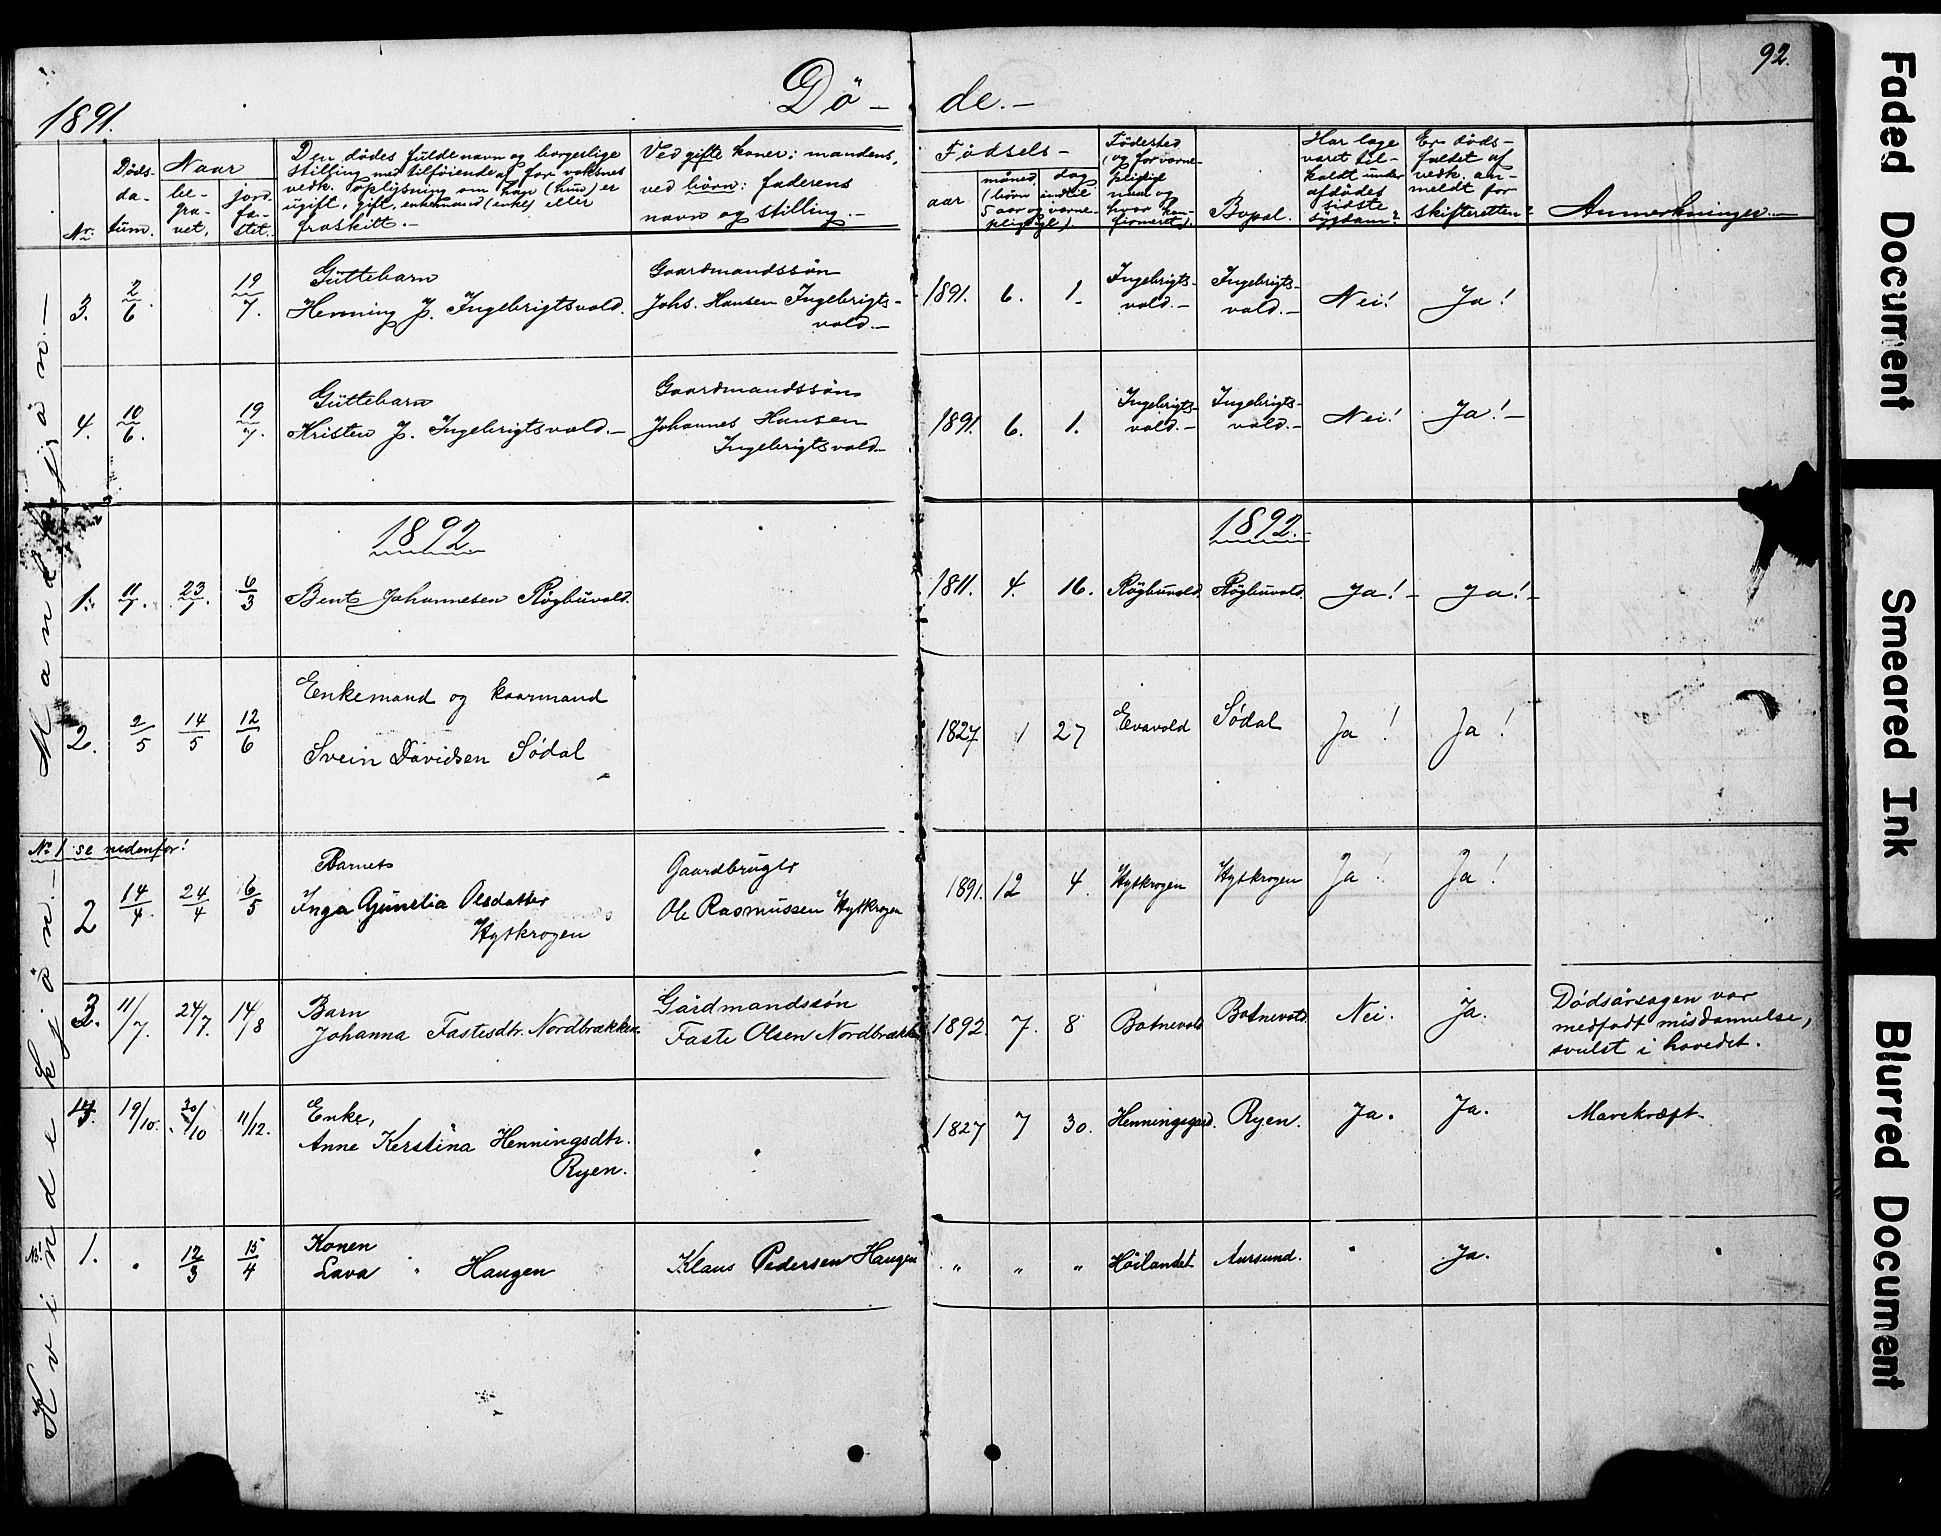 92.
1891.
Dö- de.-
Nr.
Døds-
da-
tum.
Naar
be-
gra-
vet,
jord-
fa-
stet.
Den dødes fulde navn og borgerlige
stilling med tilføiende af for voksnes
vedk. oplysning om han (hun) er
ugift, gift, enkemand (enke) eller
fraskilt.-
Ved gifte koner: mandens,
ved börn: faderens
navn og stilling.-
Födsels-
aar
måned, dag
(börn indtil
5 aar og værne-
pligtige).
Födested
(og for værne-
pligtige
med og
hvor kon-
firmeret).
Bopæl.
Har læge
været til-
kaldt under
afdødes
sidste
sygdom?
Er døds-
faldet af
vedk. an-
meldt for
skifteretten?
Anmerkninger.-
Mandkjön.-
3. 2/6. 19/7.
Güttebarn
Henning J. Ingebrigtsvold.
Gaardmandssön
Johs. Hansen Ingebrigts-
vold.-
1891. 6. 1.
Ingebrigts-
vold.-
Ingebrigts-
vold.-
Nei! Ja!
4. 10/6. 19/7.
Güttebarn
Kristen J. Ingebrigtsvold.-
Gaardmandssön
Johannes Hansen
Ingebrigtsvold-
1891. 6. 1.
Ingebrigts-
vold.-
Ingebrigts-
vold.-
Nei! Ja!-
1892 1892.-
1. 11/1. 23/1. 6/3 Bent Johannesen Røgbüvold. 1811. 4. 16. Røgbuvold. Røgbüvold. Ja!- Ja!-
2. 2/5 14/5 12/6
Enkemand og kaarmand
Svein Davidsen Södal
1827 1 27 Evavold Södal Ja! Ja!
Kvindekjön.-
No 1 se nedenfor!
2 14/4. 24/4 6/5
Barnet
Inga Gunelia Olsdatter
Hytkrogen
Gaardbruger
Ole Rasmussen Hytkrogen
1891. 12 4 Hytkrogen Hytkrogen Ja! Ja!
3. 11/7. 24/7. 14/8
Barn
Johanna Fastesdtr. Nordbrækken.
Gårdmandssön
Faste Olsen Nordbrækken
1892. 7. 8 Botnevold Botnevold. Nei. Ja.
Dödsårsagen var
medfødt misdannelse,
svulst i hovedet.
19/10. 30/10 11/12.
Enke,
Anne Kerstina Henningsdtr.
Ryen.
1827 7 30. Henningsgård Ryen. Ja. Ja. Mavekræft.
No 1
1. 12/3 15/4
Konen
Lava " Haugen
Klaus Pedersen Haugen
" " " Höilandet Aursund. " Ja.
Faded Document
Smeared Ink
Blurred Document